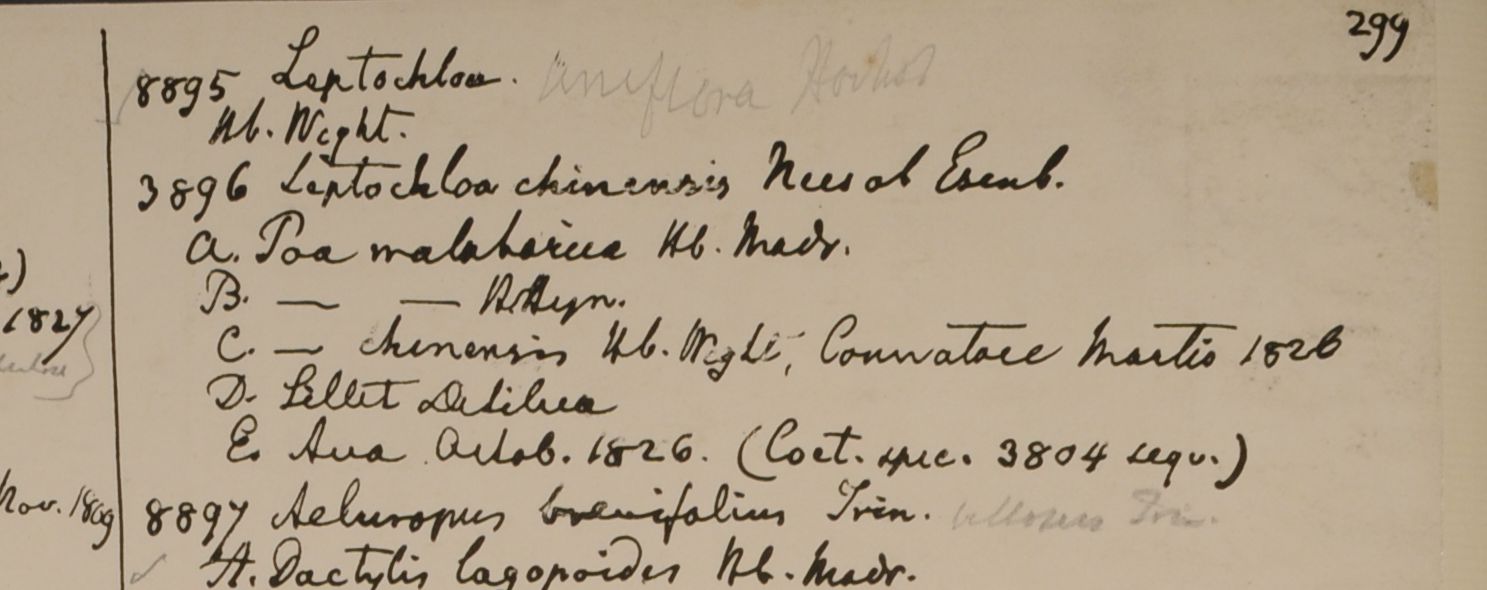 299
8895 Leptochloa. uniflora Hochst
Hb. Wight.
3896 Leptochloa chinensis Nees ab Esenb.
a. Poa malabarica Hb. Madr.
B. — — H. Heyn.
C. — chinensis Hb. Wight, Martio 1826
D. Sillet
E. Ava Octob. 1826. (Coet. spec. 3804 sequ.)
1827
Nov. 1809
8897 Aeluropus brevifolius Trin. villosus Trin.
A. Dactylis lagopoides Hb. Madr.